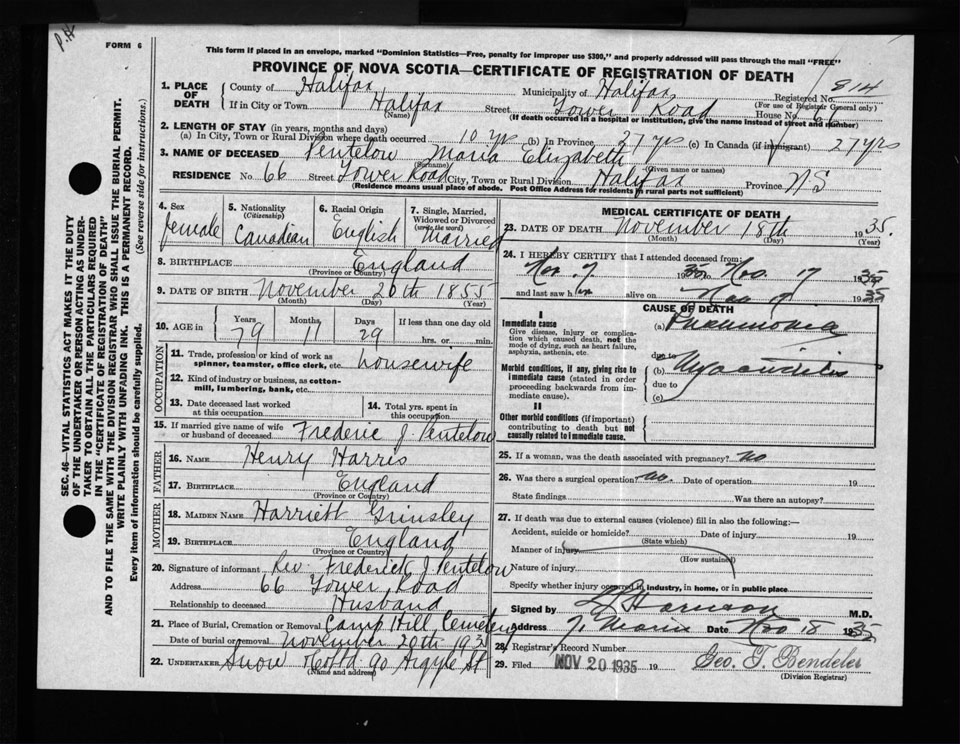 P.H
FORM 6
This form if placed in an envelope, marked "Dominion Statistics—Free, penalty for improper use $300," and properly addressed will pass through the mail "FREE"
PROVINCE OF NOVA SCOTIA—CERTIFICATE OF REGISTRATION OF DEATH
SEC. 46—VITAL STATISTICS ACT MAKES IT THE DUTY
OF THE UNDERTAKER OR PERSON ACTING AS UNDER-
TAKER TO OBTAIN ALL THE PARTICULARS REQUIRED
IN THE "CERTIFICATE OF REGISTRATION OF DEATH"
AND TO FILE THE SAME WITH THE DIVISION REGISTRAR WHO SHALL ISSUE THE BURIAL PERMIT.
WRITE PLAINLY WITH UNFADING INK. THIS IS A PERMANENT RECORD.
Every item of information should be carefully supplied. (See reverse side for instructions.)
1. PLACE OF DEATH County of Halifax Municipality of Halifax Registered No. 814
(For use of Registrar General only)
If in City or Town Halifax Street Tower Road House No. 66
(Name) (If death occurred in a hospital or institution, give the name instead of street and number)
2. LENGTH OF STAY (in years, months and days)
(a) In City, Town or Rural Division where death occurred 10 yrs (b) In Province 27 yrs (c) In Canada (if immigrant) 27 yrs
3. NAME OF DECEASED Pentelow Maria Elizabeth
(Surname) (Given name or names)
RESIDENCE No. 66 Street Tower Road City, Town or Rural Division Halifax Province NS
(Residence means usual place of abode. Post Office Address for residents in rural parts not sufficient)
4. Sex female
5. Nationality (Citizenship) Canadian
6. Racial Origin English
7. Single, Married, Widowed or Divorced (write the word) Married
8. BIRTHPLACE England
(Province or Country)
9. DATE OF BIRTH November 20th 1855
(Month) (Day) (Year)
10. AGE in Years 79 Months 11 Days 29 If less than one day old
hrs. or min.
OCCUPATION
11. Trade, profession or kind of work as spinner, teamster, office clerk, etc. housewife
12. Kind of industry or business, as cotton-mill, lumbering, bank, etc.
13. Date deceased last worked at this occupation
14. Total yrs. spent in this occupation
15. If married give name of wife or husband of deceased Frederic J. Pentelow
FATHER
16. NAME Henry Harris
17. BIRTHPLACE England
(Province or Country)
MOTHER
18. MAIDEN NAME Harriett Grinsley
19. BIRTHPLACE England
(Province or Country)
20. Signature of informant Rev. Frederick J. Pentelow
Address 66 Tower Road
Relationship to deceased Husband
21. Place of Burial, Cremation or Removal Camp Hill Cemetery
Date of burial or removal November 20th 1935
22. UNDERTAKER Snow & Co Ltd 90 Argyle St
(Name and address)
MEDICAL CERTIFICATE OF DEATH
23. DATE OF DEATH November 18th 1935.
(Month) (Day) (Year)
24. I HEREBY CERTIFY that I attended deceased from:
Nov. 7 1935 to Nov. 17 1935
and last saw her alive on Nov 17 1935
CAUSE OF DEATH
I
Immediate cause
Give disease, injury or complication which caused death, not the mode of dying, such as heart failure, asphyxia, asthenia, etc.
(a) Pneumonia
due to
Morbid conditions, if any, giving rise to immediate cause (stated in order proceeding backwards from immediate cause).
(b) Myocarditis
due to
(c)
II
Other morbid conditions (if important) contributing to death but not causally related to immediate cause.
25. If a woman, was the death associated with pregnancy? no
26. Was there a surgical operation? no. Date of operation 19
State findings Was there an autopsy?
27. If death was due to external causes (violence) fill in also the following:—
Accident, suicide or homicide? Date of injury 19
(State which)
Manner of injury
(How sustained)
Nature of injury
Specify whether injury occurred in industry, in home, or in public place
Signed by M.D.
Address Date Nov 18 1935
28. Registrar's Record Number
29. Filed NOV 20 1935 19 Geo. T. Bendeler
(Division Registrar)